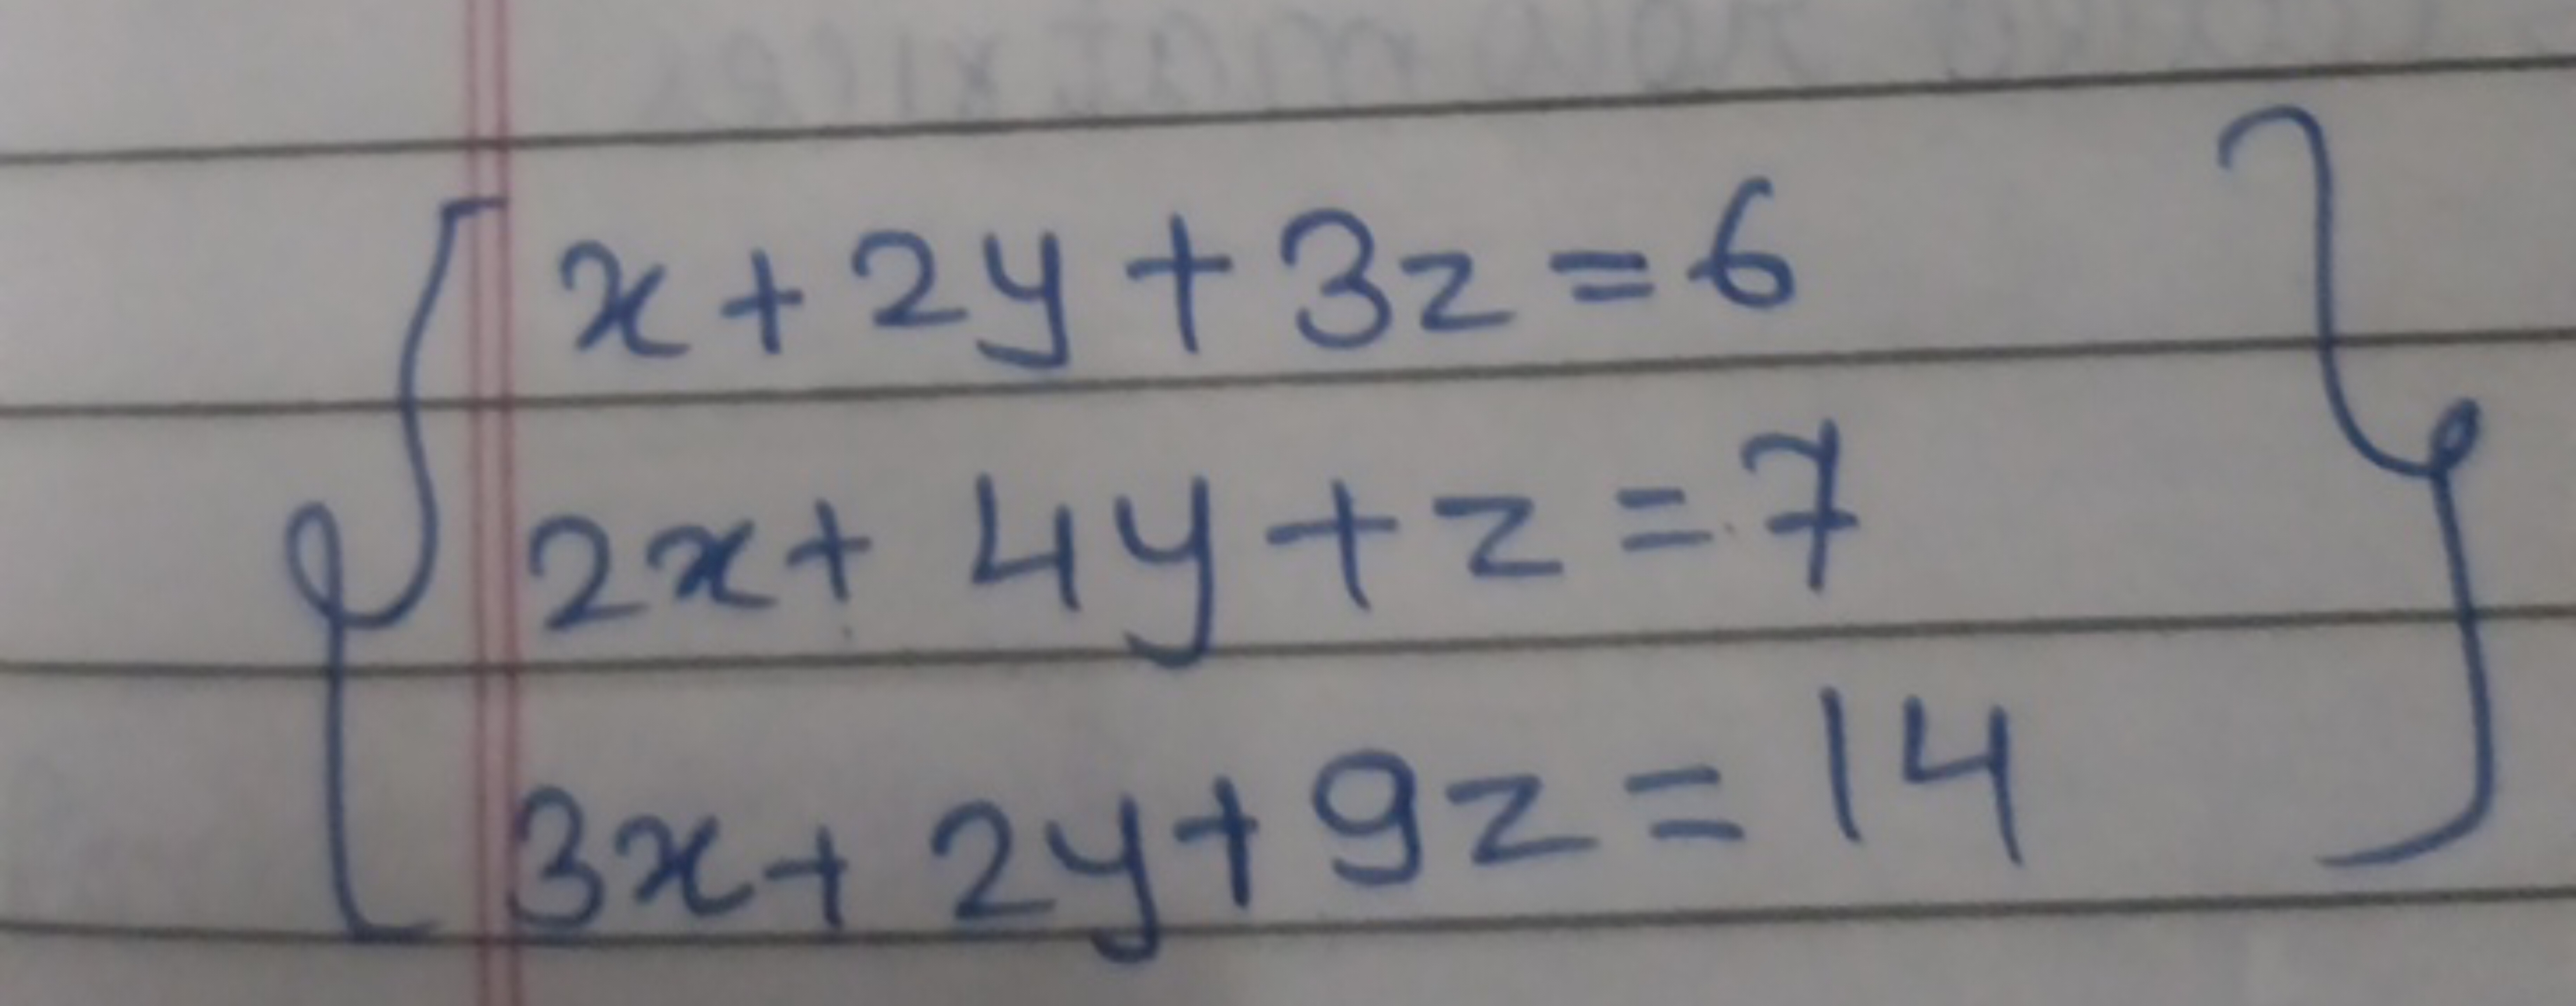 x + 2y + 3z = 6
2x + 4y + z = 7
3x + 2y + 9z = 14